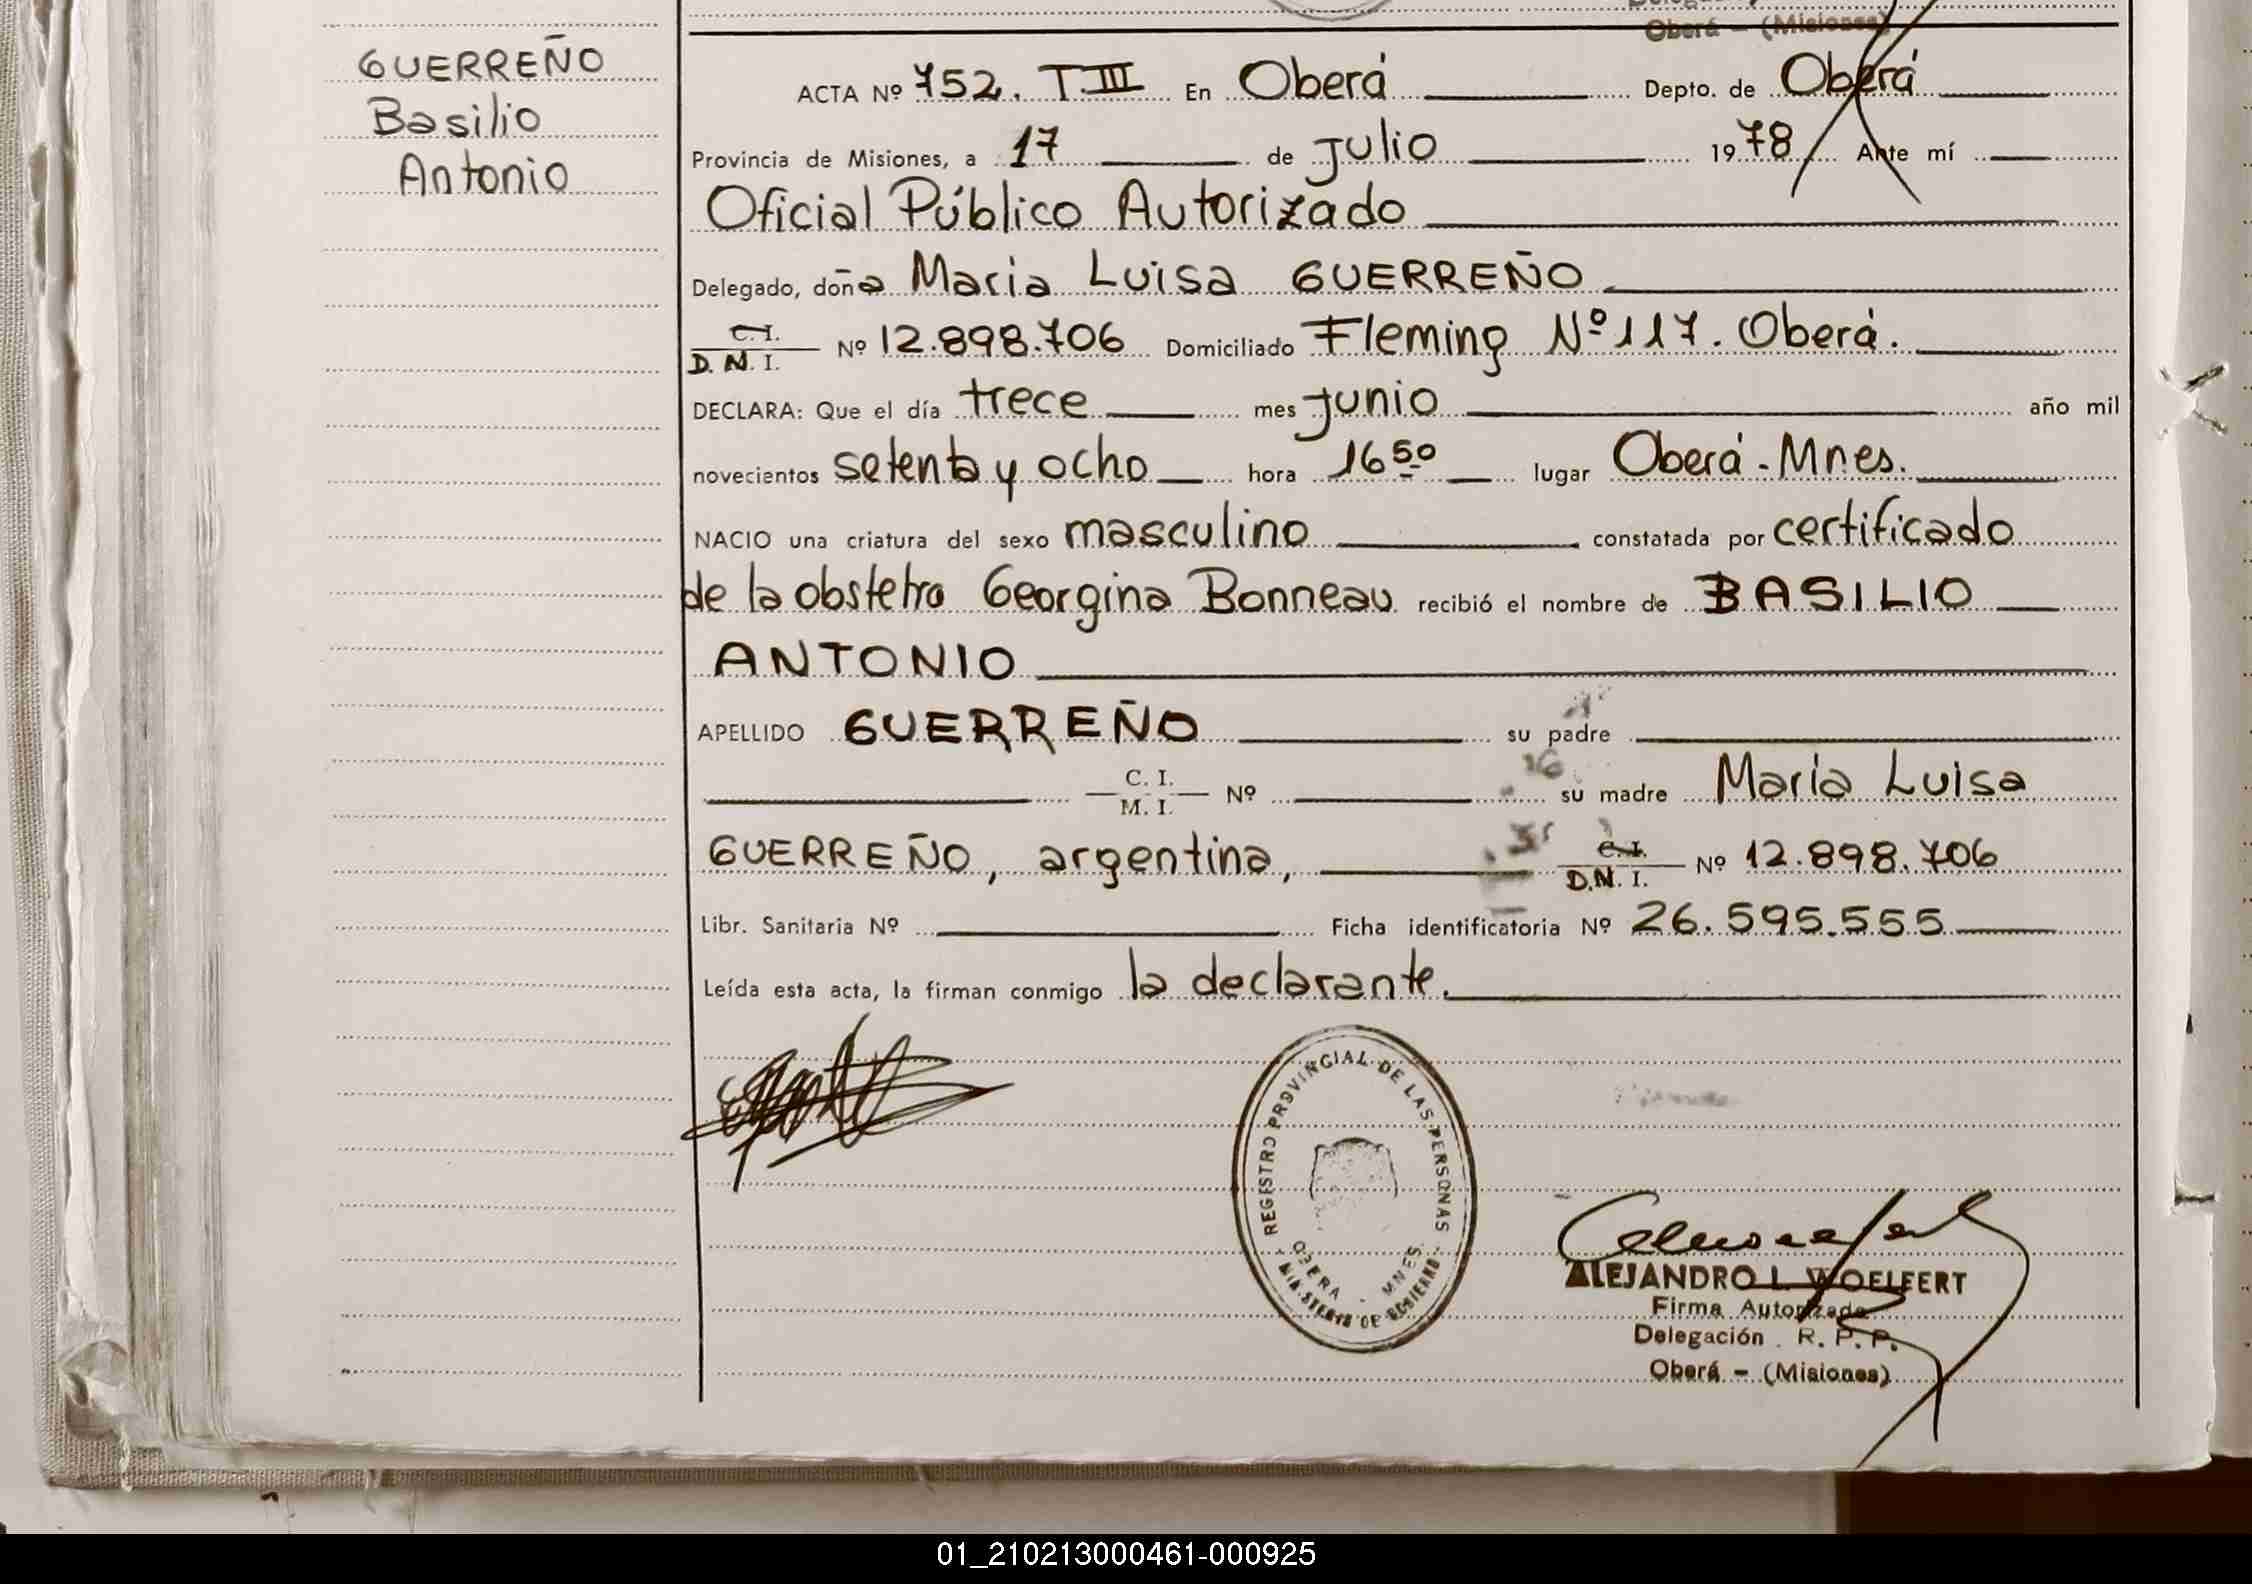 GUERREÑO
Basilio
Antonio
Oberá - (Misiones)
ACTA Nº 752. T III En Oberá Depto. de Oberá
Provincia de Misiones, a 17 de julio 1978 Ante mí
Oficial Público Autorizado
Delegado, doña Maria Luisa GUERREÑO
C. I.
D. N. I. Nº 12.898.706 Domiciliado Fleming Nº 117. Oberá.
DECLARA: Que el día trece mes junio año mil
novecientos setenta y ocho hora 16 50 lugar Oberá - Mnes.
NACIO una criatura del sexo masculino constatada por certificado
de la obstetra Georgina Bonneau recibió el nombre de BASILIO
ANTONIO
APELLIDO GUERREÑO su padre
C. I.
M. I. Nº su madre María Luisa
GUERREÑO, argentina, C. I.
D.N. I. Nº 12.898.706
Libr. Sanitaria Nº Ficha identificatoria Nº 26.595.555
Leída esta acta, la firman conmigo la declarante.
REGISTRO PROVINCIAL DE LAS PERSONAS
OBERA - MNES
MINISTERIO DE GOBIERNO
ALEJANDRO L. WOELFERT
Firma Autorizada
Delegación R. P. P.
Oberá - (Misiones)
01_210213000461-000925